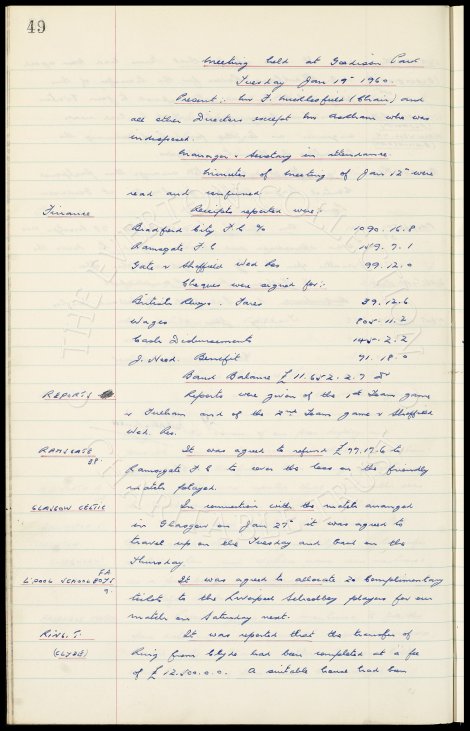 49
Meeting held at Goodison Park
Tuesday Jan 19th 1960.
Present:- Mr F. Micklesfield (Chair) and
all other Directors except Mr Askham who was
indisposed.
Manager & Secretary in attendance
Minutes of Meeting of Jan 12th were
read and confirmed
Finance Receipts reported were:-
Bradford City F.C. 1090.16.8
Ramsgate F.C 149.7.1
Gate v Sheffield Wed Res 99.12.0
Cheques were signed for:-
British Rlwys. Fares 39.12.6
Wages 805.11.2
Cash Disbursements 145.2.2
Benefit 71.18.0
Bank Balance £11.652.2.7
REPORTS Reports were given of the 1st Team game
v Fulham and of the 2nd Team game v Sheffield
Wed. Res.
RAMSGATE It was agreed to refund £77.17.6 to
Ramsgate F.C to cover the loss on the friendly
match played.
GLASGOW CELTIC In connection with the match arranged
in Glasgow on Jan 27th it was agreed to
travel up on the Tuesday and back on the
Thursday
FA
L'POOL SCHOOLBOYS It was agreed to allocate 20 Complimentary
tickets to the Liverpool Schoolboy players for our
match on Saturday next.
RING. T. It was reported that the transfer of
(CLYDE) Ring from Clyde had been completed at a fee
of £12.500.0.0. A suitable house had been
THE EVERTON COLLECTION